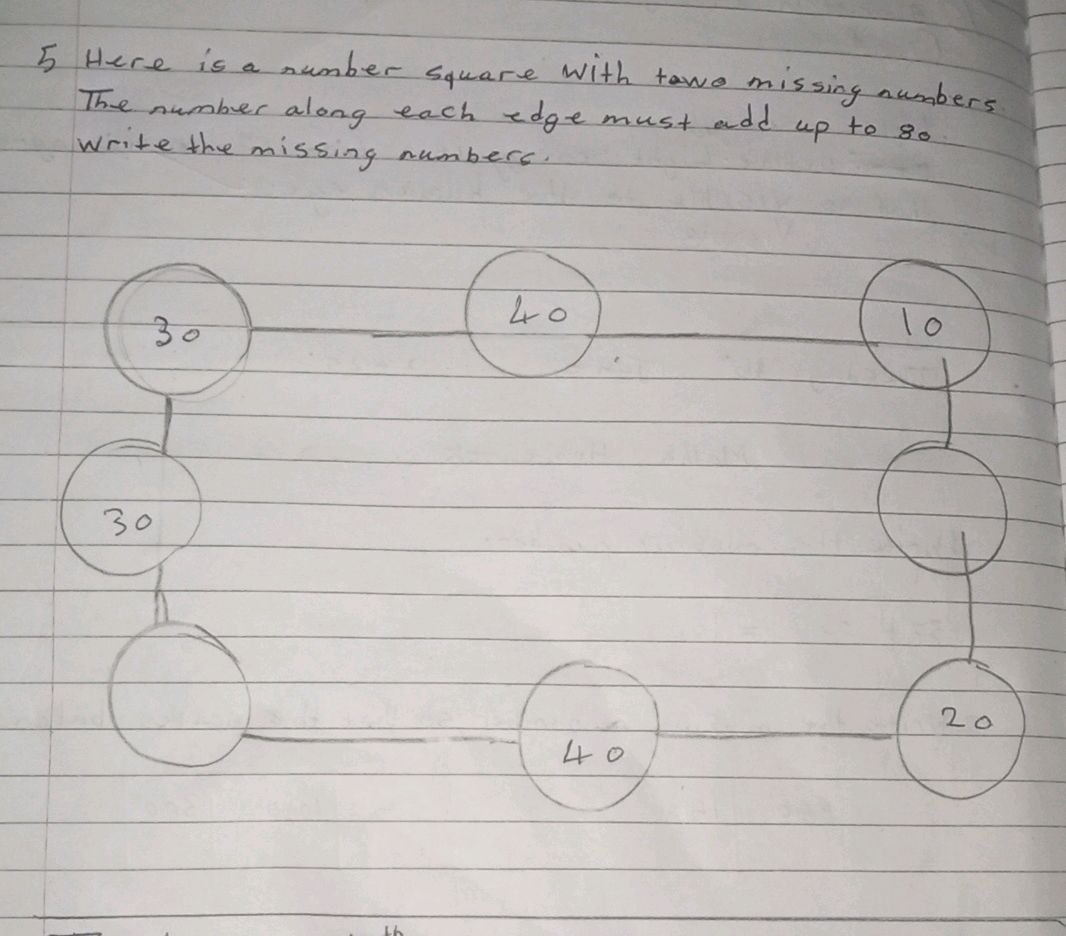 5 Here is a number square with towo missing numbers.
The number along each edge must add up to 80.
Write the missing numbers.
30 40 10
30
40 20
th